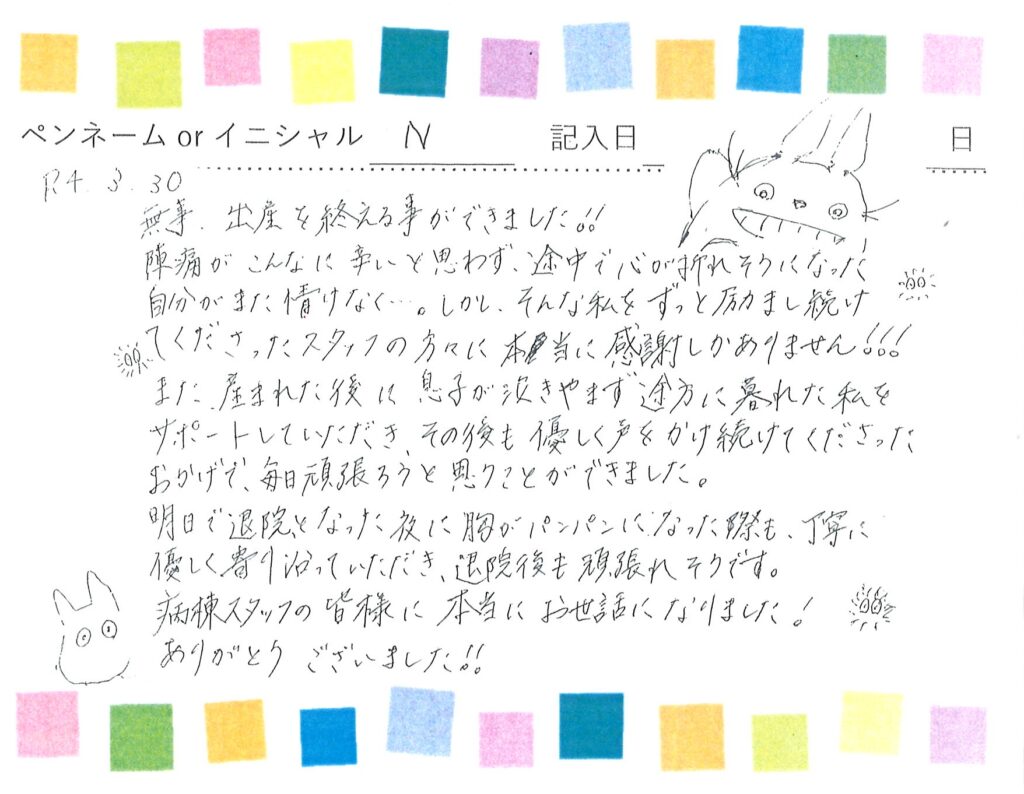 ペンネーム or イニシャル N 記入日 日
R4. 3. 30
無事、出産を終える事ができました!!
陣痛がこんなに辛いと思わず、途中で心が折れそうになった
自分がまた情けなく…。しかし、そんな私をずっと励まし続け
てくださったスタッフの方々に本当に感謝しかありません!!!
また、産まれた後に息子が泣きやまず途方に暮れた私を
サポートしていただき、その後も優しく声をかけ続けてくださった
おかげで、毎日頑張ろうと思うことができました。
明日で退院となった夜に胸がパンパンになった際も、丁寧に
優しく寄り沿っていただき、退院後も頑張れそうです。
病棟スタッフの皆様に本当にお世話になりました!
ありがとうございました!!